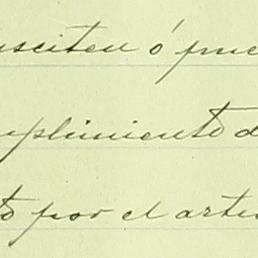 usciten ó pue
mplimiento d
to por el artu